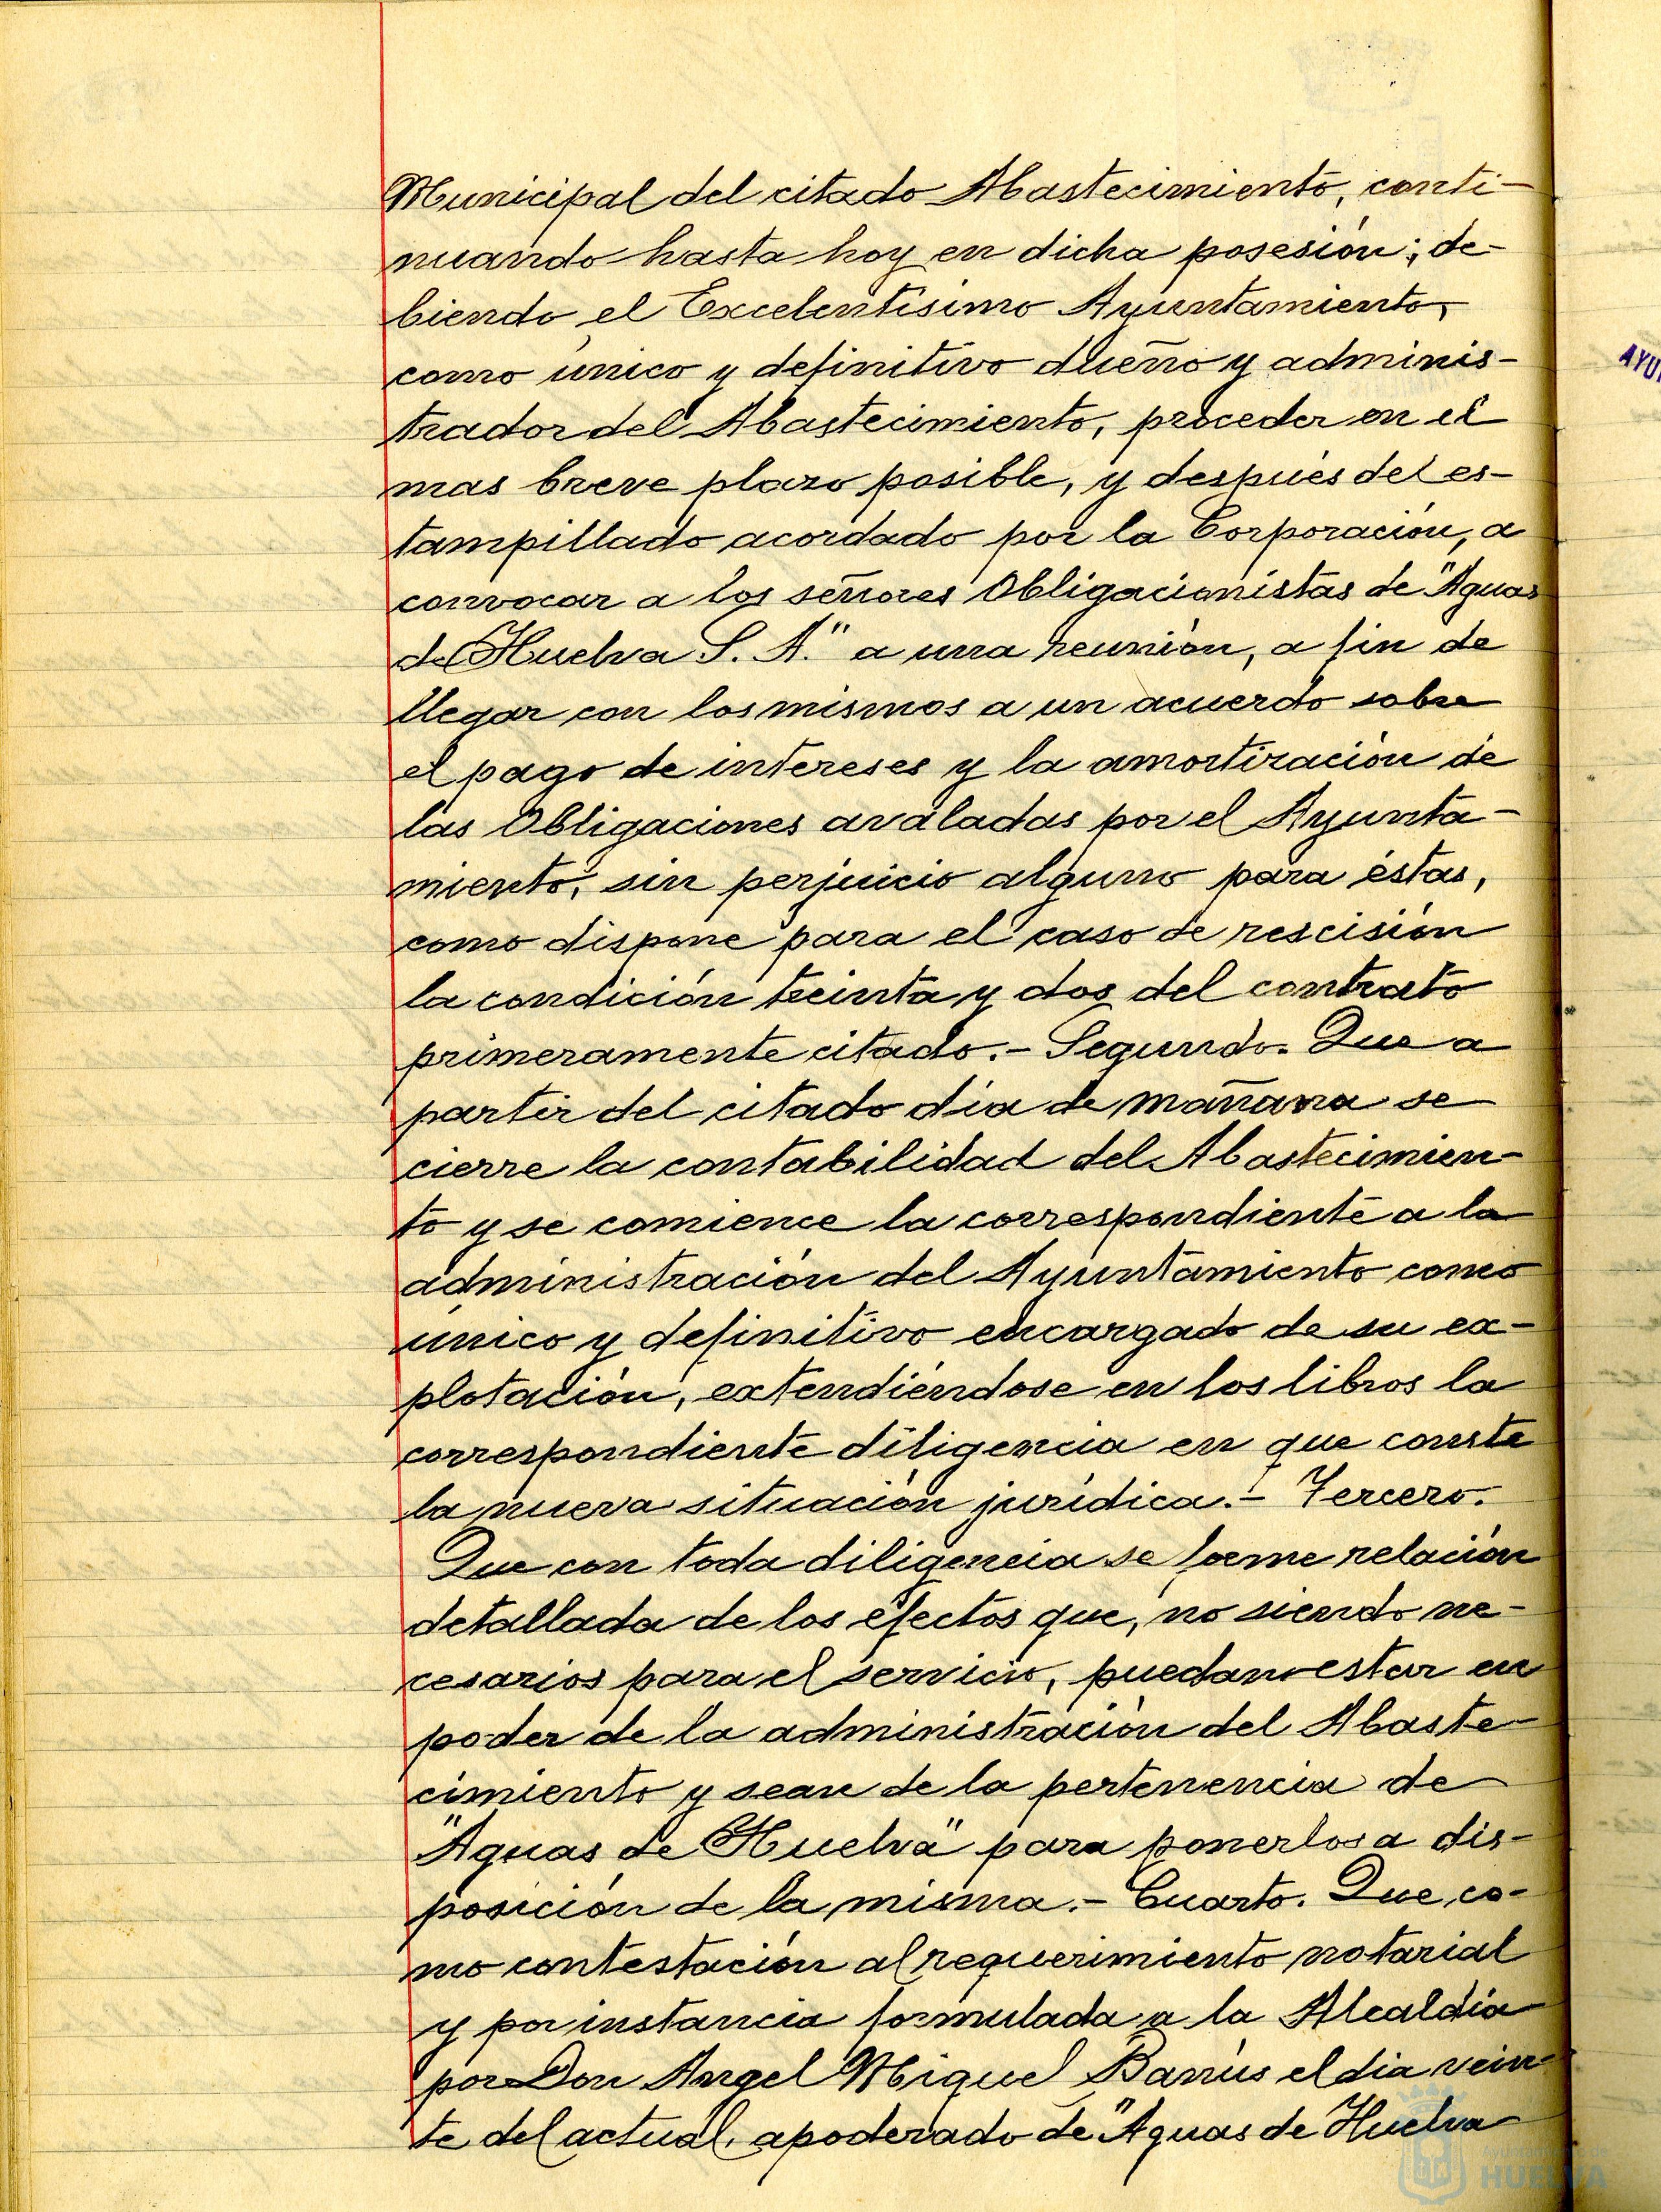 Municipal del citado Abastecimiento, conti-
nuando hasta hoy en dicha posesión; de-
biendo el Excelentísimo Ayuntamiento,
como único y definitivo dueño y adminis-
trador del Abastecimiento, proceder en el
mas breve plazo posible, y después del es-
tampillado acordado por la Corporación, a
convocar a los señores Obligacionistas de "Aguas
de Huelva S. A." a una reunión, a fin de
llegar con los mismos a un acuerdo sobre
el pago de intereses y la amortización de
las Obligaciones avaladas por el Ayunta-
miento, sin perjuicio alguno para éstas,
como dispone para el caso de rescisión
la condición treinta y dos del contrato
primeramente citado.- Segundo. Que a
partir del citado día de mañana se
cierre la contabilidad del Abastecimien-
to y se comience la correspondiente a la
administración del Ayuntamiento como
único y definitivo encargado de su ex-
plotación, extendiéndose en los libros la
correspondiente diligencia en que conste
la nueva situación jurídica.- Tercero.
Que con toda diligencia se forme relación
detallada de los efectos que, no siendo ne-
cesarios para el servicio, puedan estar en
poder de la administración del Abaste-
cimiento y sean de la pertenencia de
"Aguas de Huelva" para ponerlos a dis-
posición de la misma.- Cuarto. Que, co-
mo contestación al requerimiento notarial
y por instancia formulada a la Alcaldía
por Don Angel Miguel Barrús el día vein-
te del actual, apoderado de "Aguas de Huelva
AYU
HUELVA